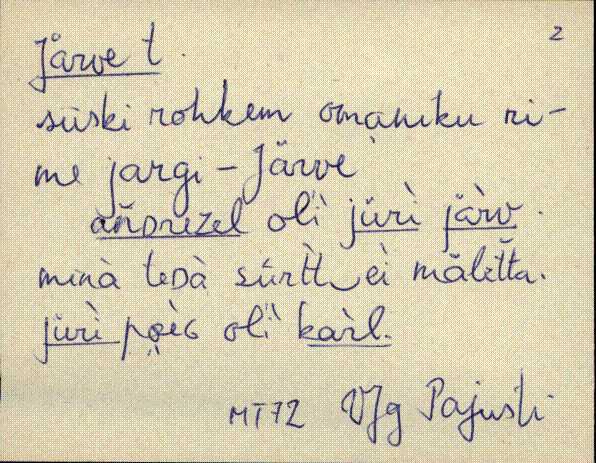 2
Järve t.
siiski rohkem omaniku ni-
me järgi – Järve
andrezel oli jüri järv.
minà tedà sūrtt ei mälettta.
jüri poèg oli kàrl.
MT72 Vfg Pajusti